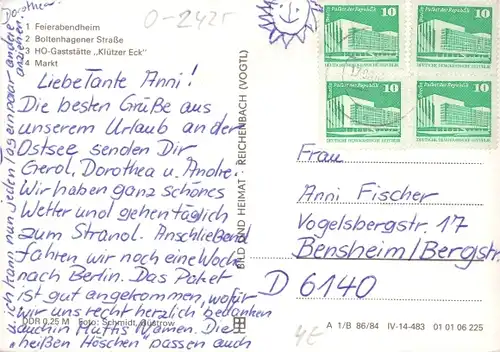 O-2425
1 Feierabendheim
2 Boltenhagener Straße
3 HO-Gaststätte „Klützer Eck"
4 Markt
Liebe Tante Anni!
Die besten Grüße aus
unserem Urlaub an der
Ostsee senden Dir
Gerol, Dorothea u. Andre.
Wir haben ganz schönes
Wetter und gehen täglich
zum Strand. Anschließend
fahren wir noch eine Woche
nach Berlin. Das Paket
ist gut angekommen, wofür
wir uns recht herzlich bedanken
auch in Muttis Namen. Die
„heißen Höschen" passen auch
u. ich kann nun jeden Tag ein paar andere
anziehen!
Dorothea
DDR 0,25 M Foto: Schmidt, Güstrow
BILD UND HEIMAT · REICHENBACH (VOGTL)
Palast der Republik 10
DEUTSCHE DEMOKRATISCHE REPUBLIK
Palast der Republik 10
DEUTSCHE DEMOKRATISCHE REPUBLIK
Palast der Republik 10
DEUTSCHE DEMOKRATISCHE REPUBLIK
Palast der Republik 10
DEUTSCHE DEMOKRATISCHE REPUBLIK
Frau
Anni Fischer
Vogelsbergstr. 17
Bensheim/Bergstr.
D 6140
4E
A 1/B 86/84 IV-14-483 01 01 06 225